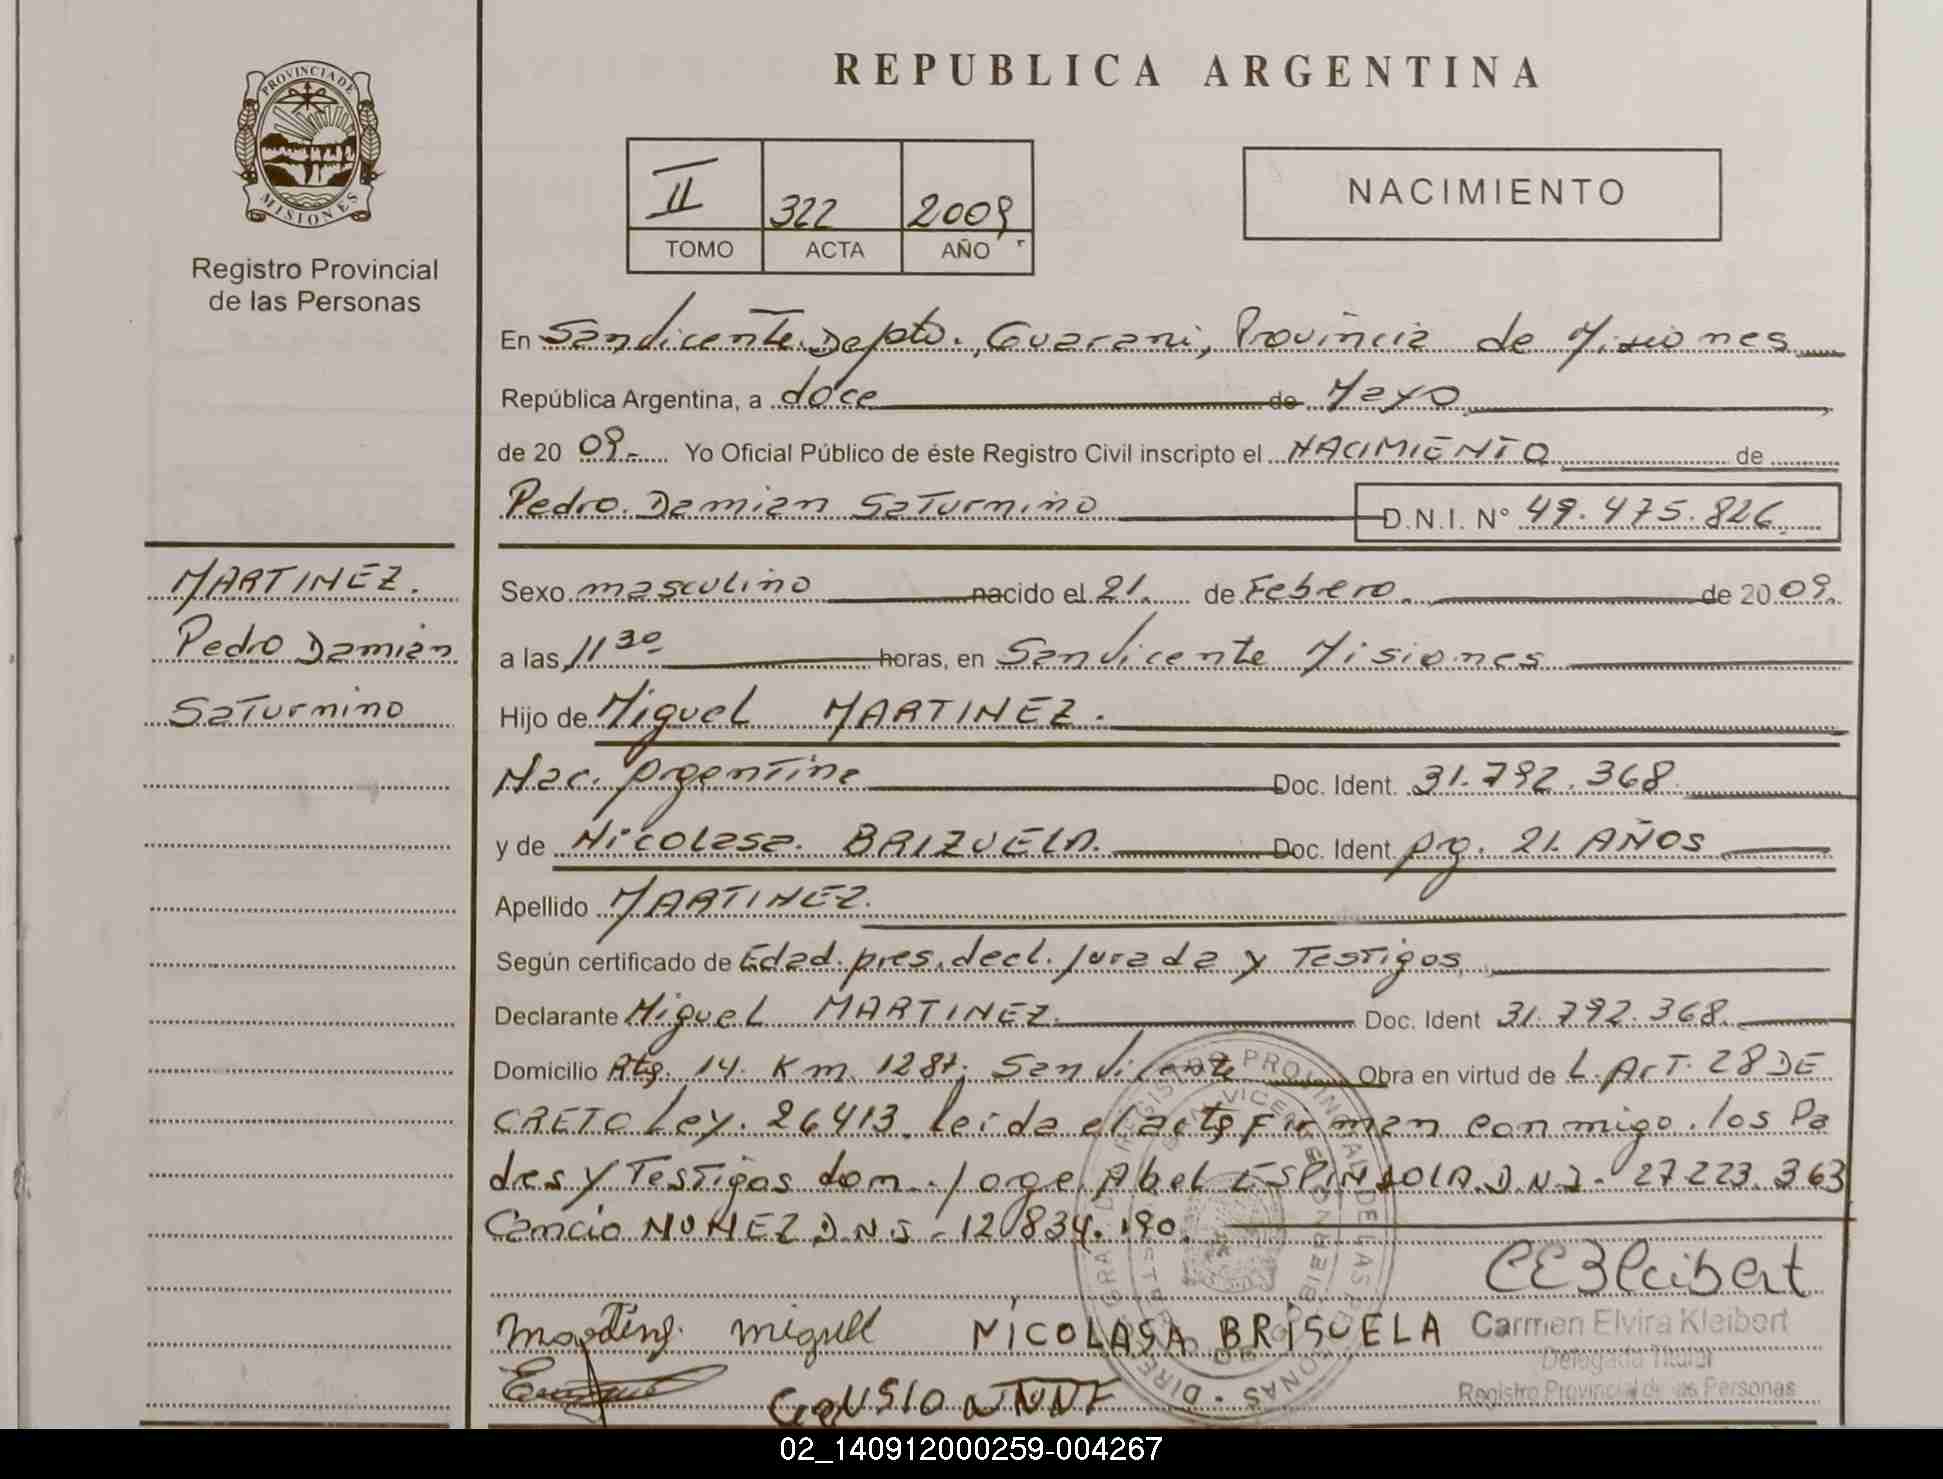 PROVINCIA DE
MISIONES
Registro Provincial
de las Personas
MARTINEZ.
Pedro Damian
Saturnino
REPUBLICA ARGENTINA
II 322 2009
TOMO ACTA AÑO
NACIMIENTO
En San Vicente. Depto. Guarani, Provincia de Misiones
República Argentina, a doce de Mayo
de 20 09.- Yo Oficial Público de éste Registro Civil inscripto el NACIMIENTO de
Pedro Damian Saturnino D.N.I. N° 49.475.826
Sexo masculino nacido el 21. de Febrero. de 20 09.
a las 11 30 horas, en San Vicente Misiones
Hijo de Miguel MARTINEZ.
Nac. Argentina Doc. Ident. 31.792.368
y de Nicolasa BRIZUELA. Doc. Ident. Arg. 21. AÑOS
Apellido MARTINEZ.
Según certificado de Edad. pres. decl. Jurada y Testigos
Declarante Miguel MARTINEZ. Doc. Ident 31.792.368.
Domicilio Rta. 14. Km. 1281, San Vicente Obra en virtud de L. Art. 28 DE
CRETO Ley. 26413. leida el acta Firman conmigo. los Pa
dres y Testigos dom. Jorge Abel ESPINDOLA. D.N.I. - 27.223.363
Cancio NUNEZ D.N.I. - 12.834.190.
CEKleibert
Miguel NICOLASA BRISUELA Carmen Elvira Kleibert
Delegada Titular
Registro Provincial de las Personas
02_140912000259-004267